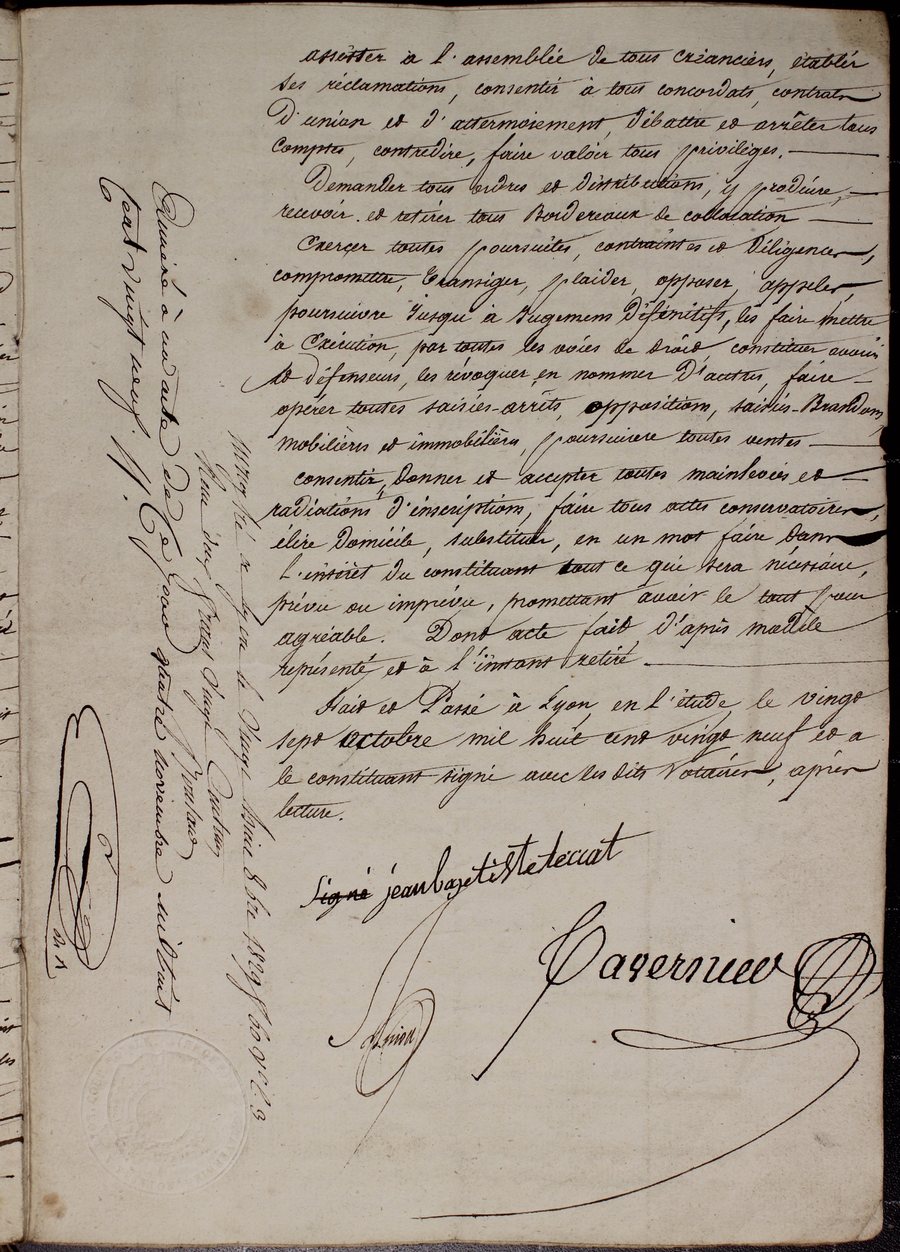 assister à l'assemblée de tous créanciers, établir
ses réclamations, consentir à tous concordats, contrats
d'union et d'attermoiement, débattre et arrêter tous
comptes, contredire, faire valoir tous privilèges.
Demander tous ordres et distributions, y produire,
recevoir et retirer tous Bordereaux de collocation
Exercer toutes poursuites, contraintes et Diligences,
compromettre, transiger, plaider, opposer, appeler,
poursuivre jusqu'à jugemens Définitifs, les faire mettre
à Exécution, par toutes les voies de droit constituer avoués
et défenseurs, les révoquer, en nommer D'autres, faire
opérer toutes saisies-arrêts, opposition, saisies-Brandons,
mobilières et immobilières, poursuivre toutes ventes
consentir, donner et accepter toutes mainlevées et
radiations d'inscriptions, faire tous actes conservatoires,
élire Domicile, substituer, en un mot faire dans
l'intérêt du constituant tout ce qui sera nécessaire,
prévu ou imprévu, promettant avoir le tout pour
agréable. Dont acte fait d'après modèle
représenté et à l'instant retiré.
Fait et Passé à Lyon, en l'étude, le vingt
sept octobre mil huit cent vingt neuf et a
le constituant signé avec les dits Notaires, après
lecture.
Signé jean bapetiste
Tavernier
Enregistré à Lyon le vingt huit 8bre 1829
Reçu deux francs vingt centimes
Annexé à un acte de ce jour quatre novembre mil huit
cent vingt neuf.